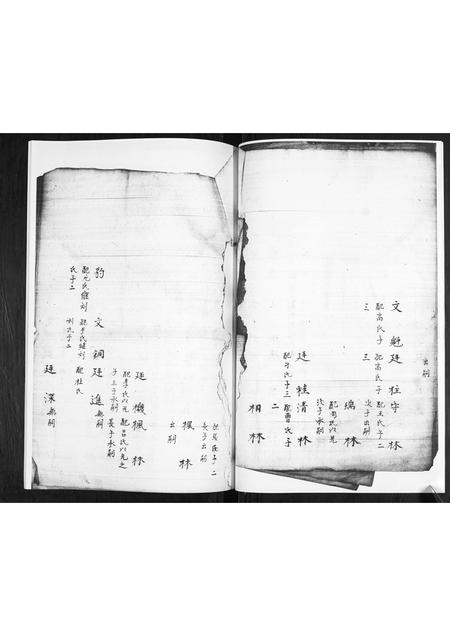 出嗣
文魁廷柱守林
配高氏子三
配高氏子三
配王氏子二
次子出嗣
林
次子承嗣
廷桂清林
配刁氏子三
配曹氏子二
相林
配吳氏子二
長子出嗣
楓林
出嗣
廷機楓林
配李氏以
子三子承嗣
配呂氏以
長子承嗣
豹文銅廷進無嗣
配尤氏繼刘氏子二
配李氏繼刘
刘氏子二
配杜氏
廷深無嗣